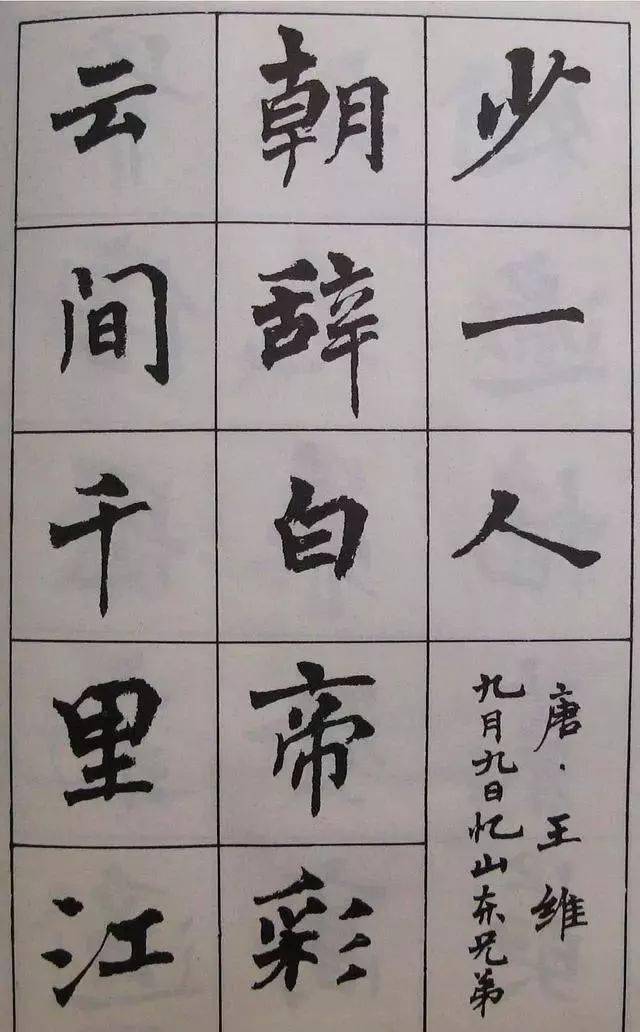 少一人
唐·王维
九月九日忆山东兄弟
朝辞白帝彩
云间千里江